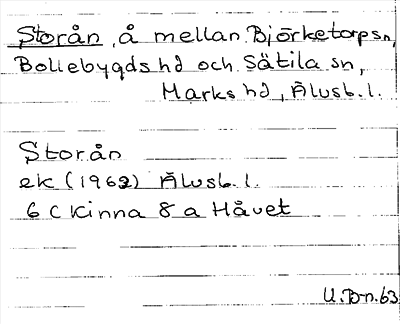 Storån, å mellan Björketorps sn,
Bollebygds hd och Sätila sn,
Marks hd, Älvsb. l.
Storån
ek (1962) Älvsb. l.
6 C Kinna 8 a Håvet
U.Bn.63